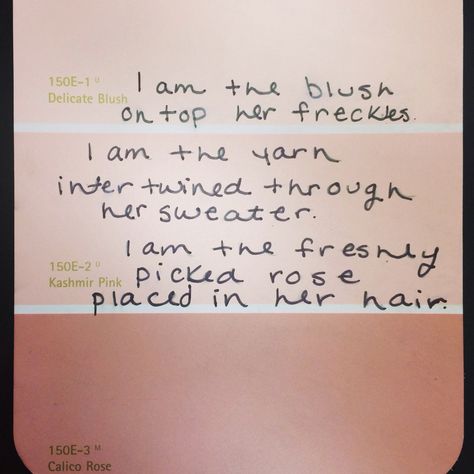 150E-1 U
Delicate Blush
I am the blush
on top her freckles.
I am the yarn
intertwined through
her sweater.
I am the freshly
150E-2 U
Kashmir Pink
picked rose
placed in her hair.
150E-3 M
Calico Rose